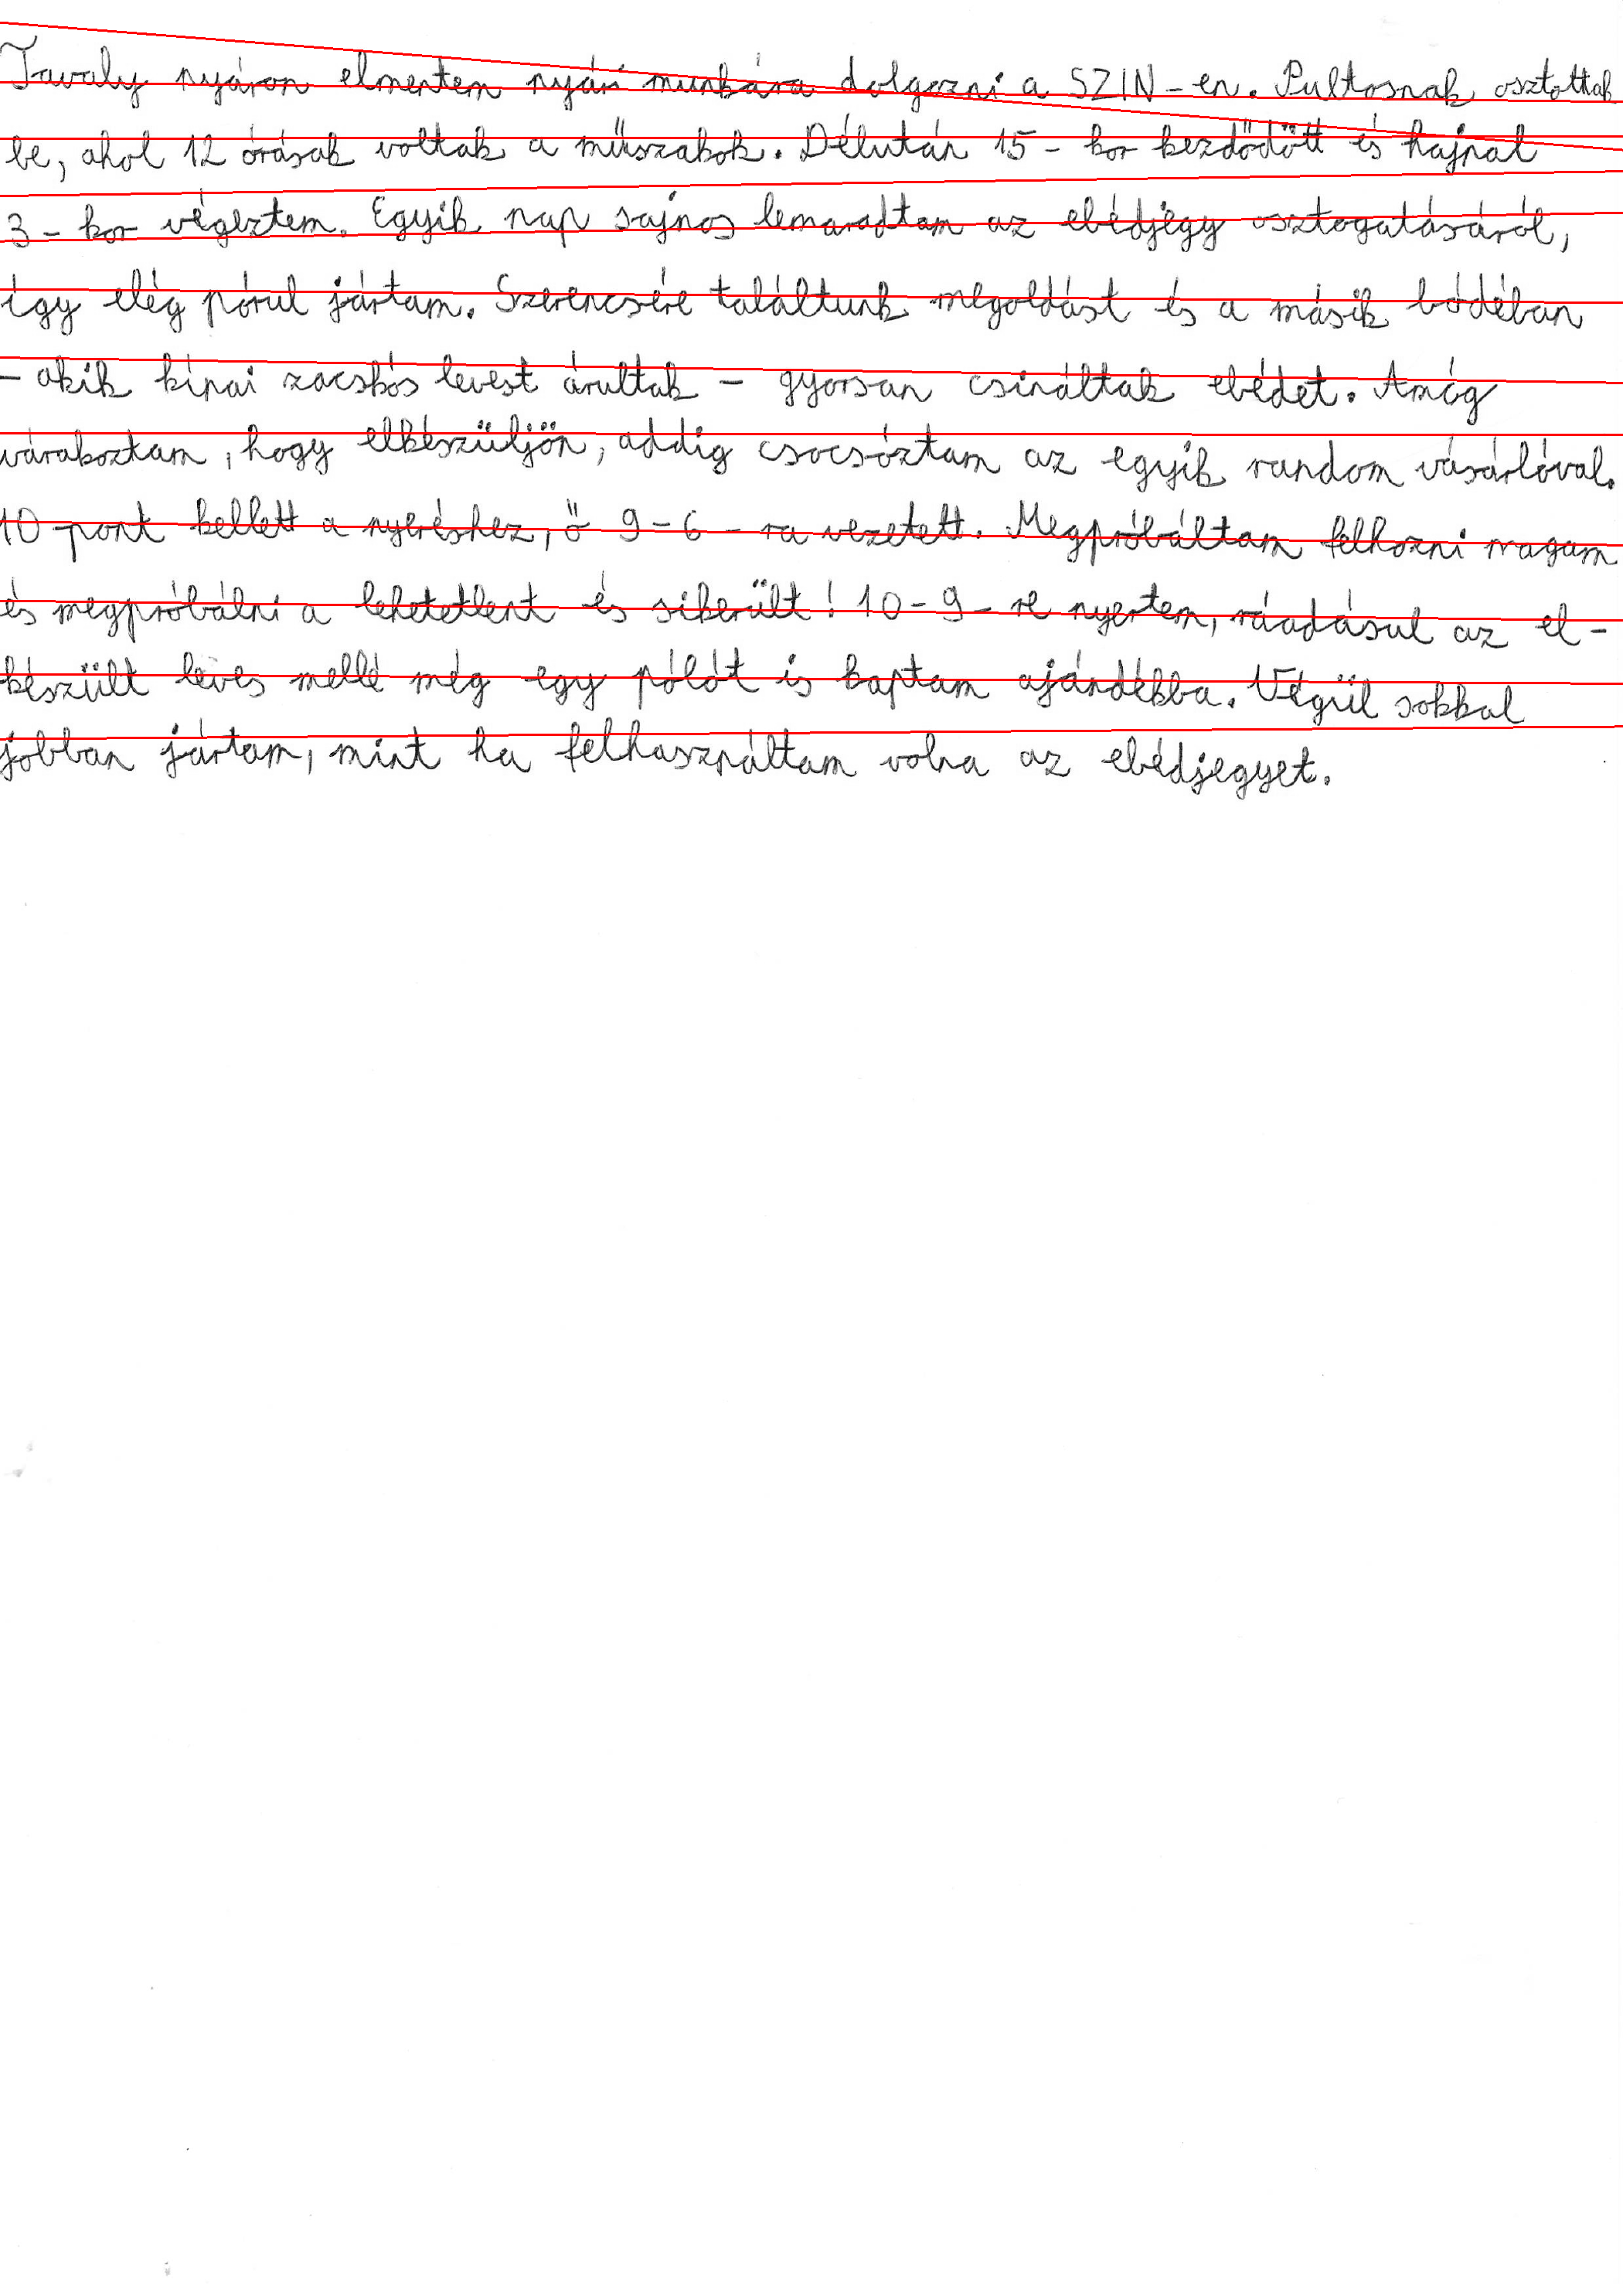 Tavaly nyáron elmentem nyári munkára dolgozni a SZIN-en. Pultosnak osztottak
be, ahol 12 órásak voltak a műszakok. Délután 15-kor kezdődött és hajnal
3-kor végeztem. Egyik nap sajnos lemaradtam az ebédjegy osztogatásáról,
így elég pórul jártam. Szerencsére találtunk megoldást és a másik bódéban
- akik kínai zacskós levest árultak - gyorsan csináltak ebédet. Amíg
várakoztam, hogy elkészüljön, addig csocsóztam az egyik random vásárlóval.
10 pont kellett a nyeréshez, ő 9-6-ra vezetett. Megpróbáltam felhozni magam
és megpróbálni a lehetetlent és sikerült! 10-9-re nyertem, ráadásul az el-
készült leves mellé még egy pólót is kaptam ajándékba. Végül sokkal
jobban jártam, mint ha felhasználtam volna az ebédjegyet.